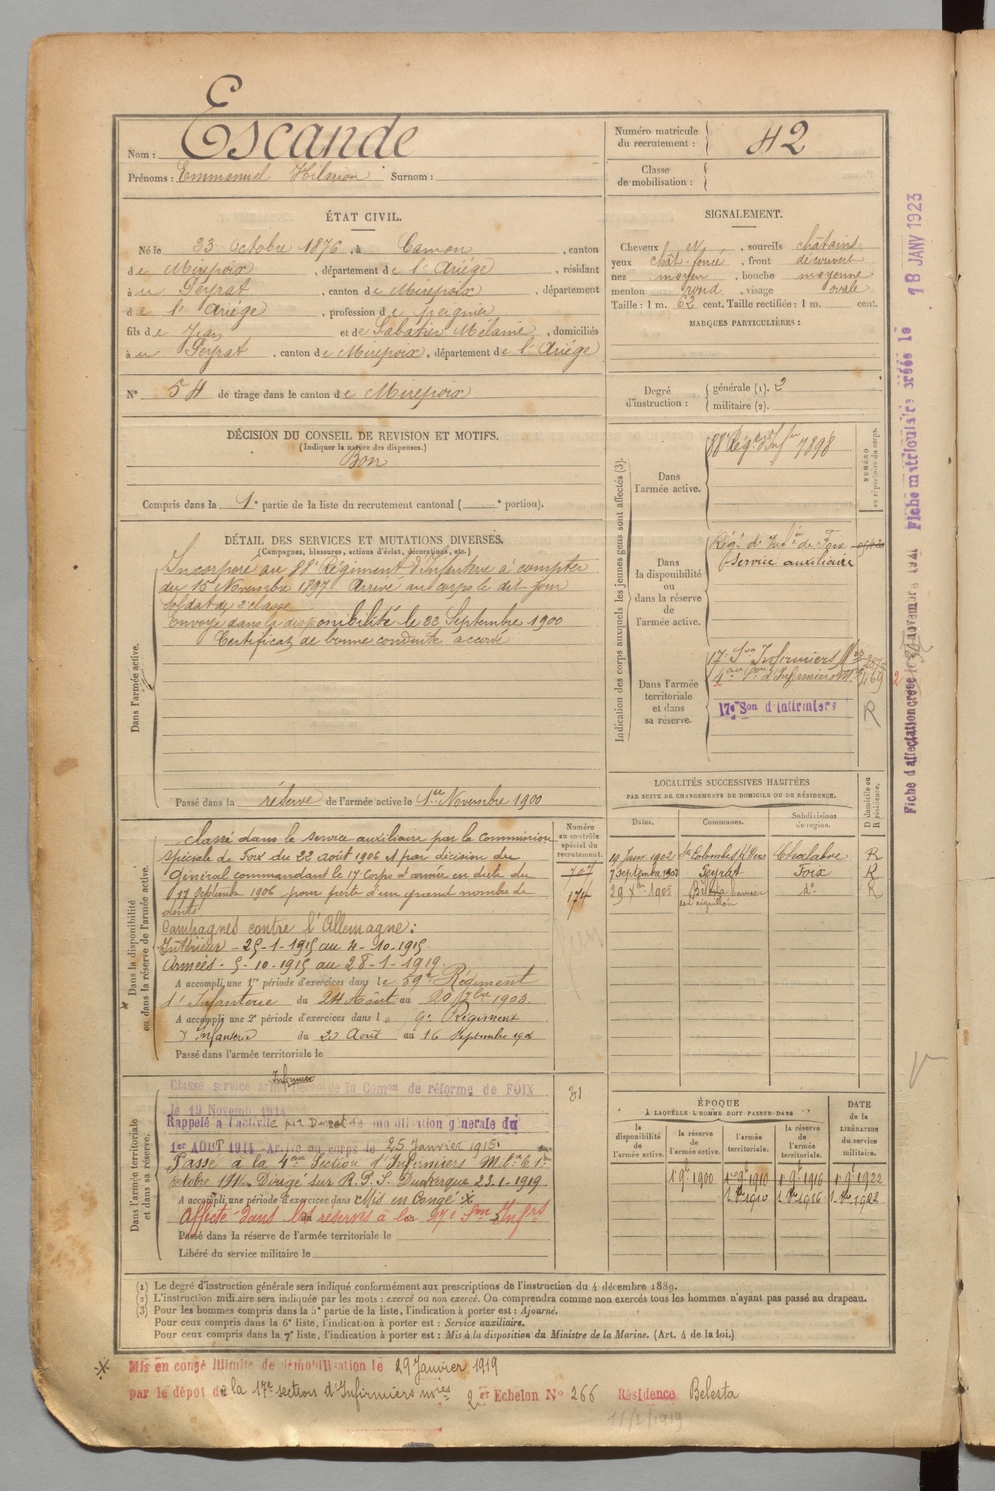 Nom : Escande
Prénoms : Emmanuel Hilarion Surnom :
Numéro matricule
du recrutement : 42
Classe
de mobilisation :
ÉTAT CIVIL.
Né le 23 Octobre 1876, à Camon, canton
de Mirepoix, département de l'Ariége, résidant
à Peyrat, canton de Mirepoix, département
de l'Ariége, profession de peignier
fils de Jean et de Sabatier Mélanie, domiciliés
à Peyrat, canton de Mirepoix, département de l'Ariége
N° 54 de tirage dans le canton de Mirepoix
SIGNALEMENT.
Cheveux et, sourcils châtains
yeux chât-foncé, front découvert
nez moyen, bouche moyenne
menton rond, visage ovale
Taille : 1 m. 62 cent. Taille rectifiée : 1 m. cent.
MARQUES PARTICULIÈRES :
Degré
d'instruction :
générale (1). 2
militaire (2).
DÉCISION DU CONSEIL DE REVISION ET MOTIFS.
(Indiquer la nature des dispenses.)
Bon
Compris dans la 1e partie de la liste du recrutement cantonal ( e portion).
DÉTAIL DES SERVICES ET MUTATIONS DIVERSES.
(Campagnes, blessures, actions d'éclat, décorations, etc.)
Dans l'armée active.
Incorporé au 88e Régiment d'Infanterie à compter
du 15 Novembre 1897 Arrivé au corps le dit jour
soldat de 2e classe
Envoyé dans la disponibilité le 22 Septembre 1900
Certificat de bonne conduite accordé
Passé dans la réserve de l'armée active le 1er Novembre 1900
Indication des corps auxquels les jeunes gens sont affectés (3).
Dans
l'armée active.
88e Régt d'Infie 7898
NUMÉRO
au répertoire du corps.
Dans
la disponibilité
ou
dans la réserve
de
l'armée active.
Régt d'Infie de Foix
Service auxiliaire
Dans l'armée
territoriale
et dans
sa réserve.
17e Son Infirmiers
4eme Son d'Infirmiers Mres 469
17e Son d'Infirmiers
R
LOCALITÉS SUCCESSIVES HABITÉES
PAR SUITE DE CHANGEMENTS DE DOMICILE OU DE RÉSIDENCE.
D domicile ou
R résidence.
Dates. Communes. Subdivisions
de région.
19 Janv 1902 Ste Colombe s/ l'Hers Chalabre R
7 septembre 1902 Peyrat Foix R
29 Xbre 1905 Bélesta hameau
de l'aiguillon do R
Dans la disponibilité
ou dans la réserve de l'armée active.
Numéro
au contrôle
spécial du
recrutement.
707
174
classé dans le service auxiliaire par la Commission
spéciale de Foix du 22 août 1906 et par décision du
Général commandant le 17 Corps d'armée en date du
17 Septembre 1906 pour perte d'un grand nombre de
dents
Campagnes contre l'Allemagne :
Intérieur - 25-1-1915 au 4-10-1915.
Armées - 5-10-1915 au 28-1-1919.
A accompli une 1re période d'exercices dans le 59e Régiment
d'Infanterie du 24 Août au 20 7bre 1903.
A accompli une 2e période d'exercices dans le 9e Régiment
d'Infanterie du 20 Août au 16 Septembre 190
Passé dans l'armée territoriale le
Dans l'armée territoriale
et dans sa réserve.
31
Infirmier
Classé service armé de la Comon de réforme de FOIX
le 19 Novemb 1914
Rappelé à l'activité par Décret de mobilisation générale du
1er AOUT 1914 - Arrivé au corps le 25 Janvier 1915.
Passé à la 4eme Section d'Infirmiers Mres le 1er
octobre 191 Dirigé sur R.G.S. Dunkerque 23-1-1919
A accompli une période d'exercices dans Mis en Congé X
Affecté dans les réserves à la 17e Son Infrs
Passé dans la réserve de l'armée territoriale le
Libéré du service militaire le
ÉPOQUE
À LAQUELLE L'HOMME DOIT PASSER DANS
DATE
de la
LIBÉRATION
du service
militaire.
la
disponibilité
de
l'armée active.
la réserve
de
l'armée active.
l'armée
territoriale.
la réserve
de
l'armée
territoriale.
1 9bre 1900 1er 9bre 1910 1 9bre 1916 1 9bre 1922
1 8bre 1910 1 8bre 1916 1 8bre 1922
(1) Le degré d'instruction générale sera indiqué conformément aux prescriptions de l'instruction du 4 décembre 1889.
(2) L'instruction militaire sera indiquée par les mots : exercé ou non exercé. On comprendra comme non exercés tous les hommes n'ayant pas passé au drapeau.
(3) Pour les hommes compris dans la 5e partie de la liste, l'indication à porter est : Ajourné.
Pour ceux compris dans la 6e liste, l'indication à porter est : Service auxiliaire.
Pour ceux compris dans la 7e liste, l'indication à porter est : Mis à la disposition du Ministre de la Marine. (Art. 4 de la loi.)
Mis en congé illimité de démobilisation le 29 Janvier 1919
par le dépot de la 17e section d'Infirmiers mres 2er Echelon N° 266 Résidence Belesta
11/2/1919
Fiche d'affectation créée le novembre 1941 Fiche matriculaire créée le 18 JANV 1923